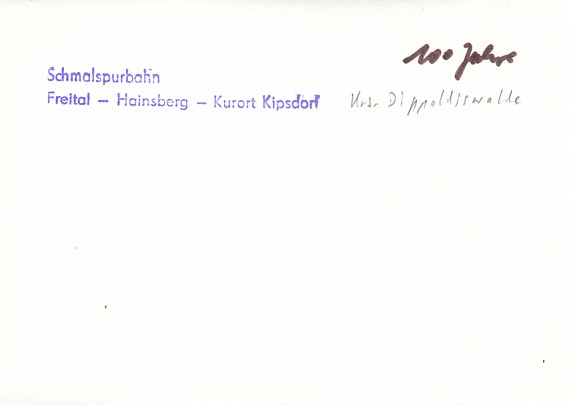 100 Jahre
Schmalspurbahn
Freital – Hainsberg – Kurort Kipsdorf
Dippoldiswalde